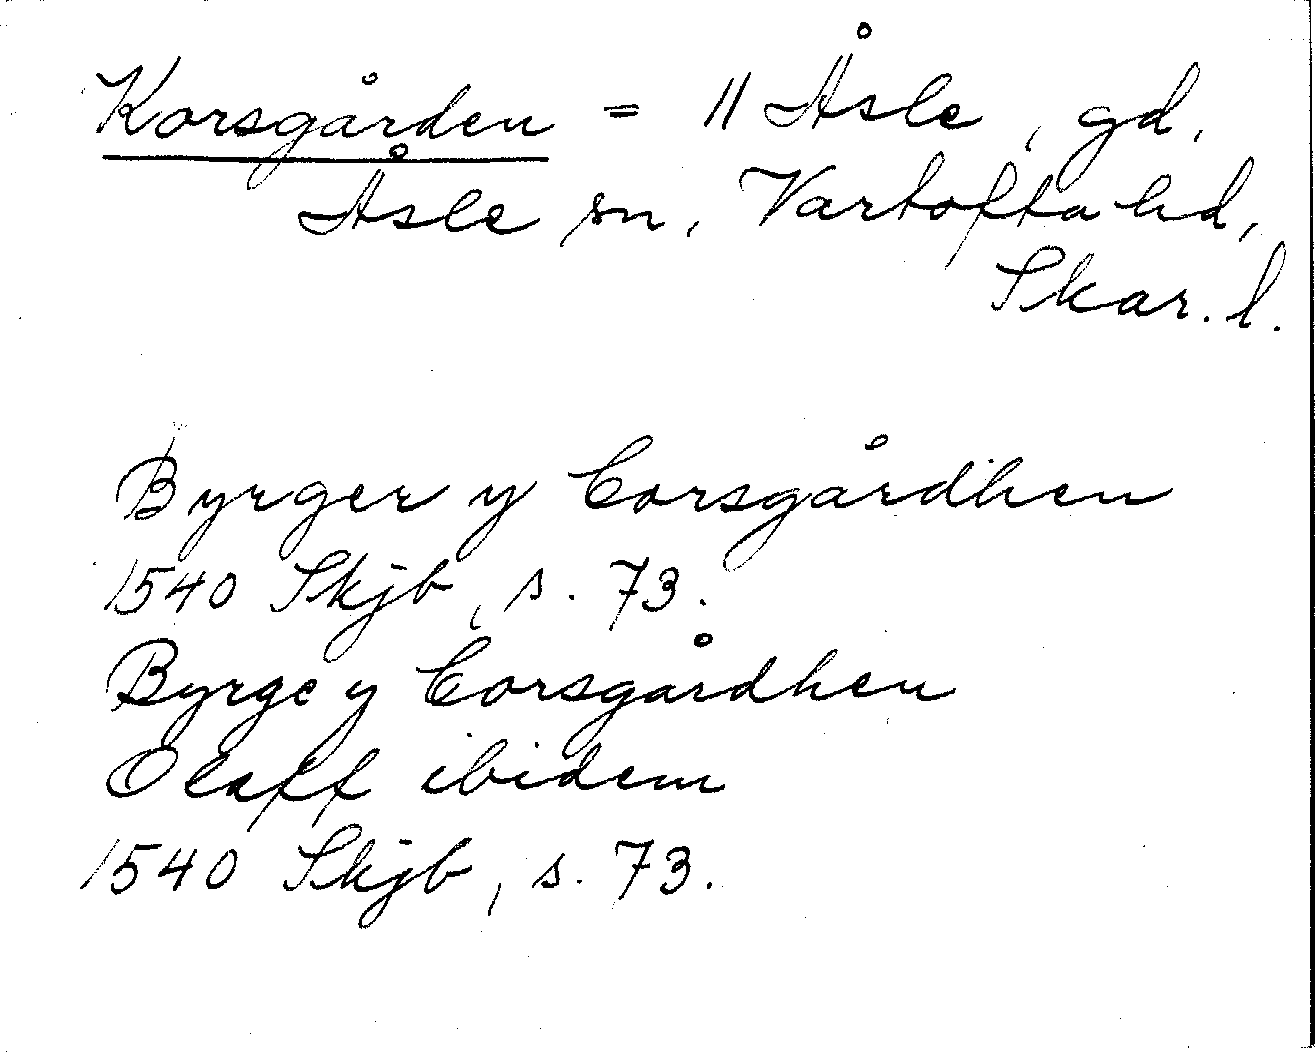 Korsgården = 11 Åsle, gd,
Åsle sn, Vartofta hd,
Skar. l.
Byrger y Corsgårdhen
1540 Skjb, s. 73.
Byrge y Corsgårdhen
Olaff ibidem
1540 Skjb, s. 73.